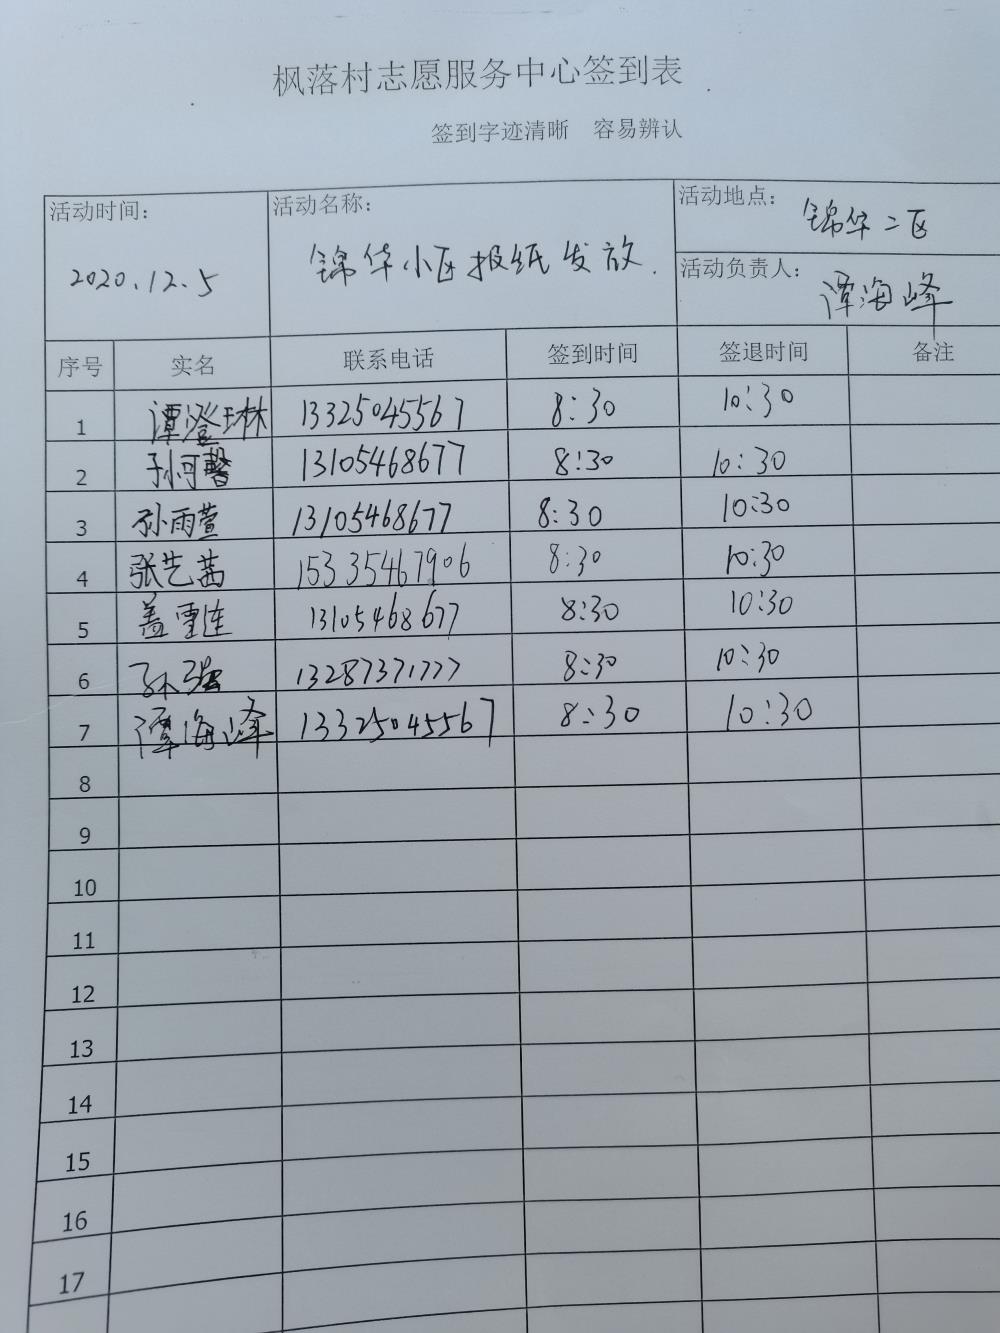 枫落村志愿服务中心签到表
签到字迹清晰 容易辨认
活动时间: 2020.12.5
活动名称: 锦华小区报纸发放.
活动地点: 锦华二区
活动负责人: 谭海峰
序号 实名 联系电话 签到时间 签退时间 备注
1 谭澄琳 13325045567 8:30 10:30
2 孙可馨 13105468677 8:30 10:30
3 孙雨萱 13105468677 8:30 10:30
4 张艺茜 15335467906 8:30 10:30
5 盖雪莲 13105468677 8:30 10:30
6 孙强 13287371777 8:30 10:30
7 谭海峰 13325045567 8:30 10:30
8
9
10
11
12
13
14
15
16
17